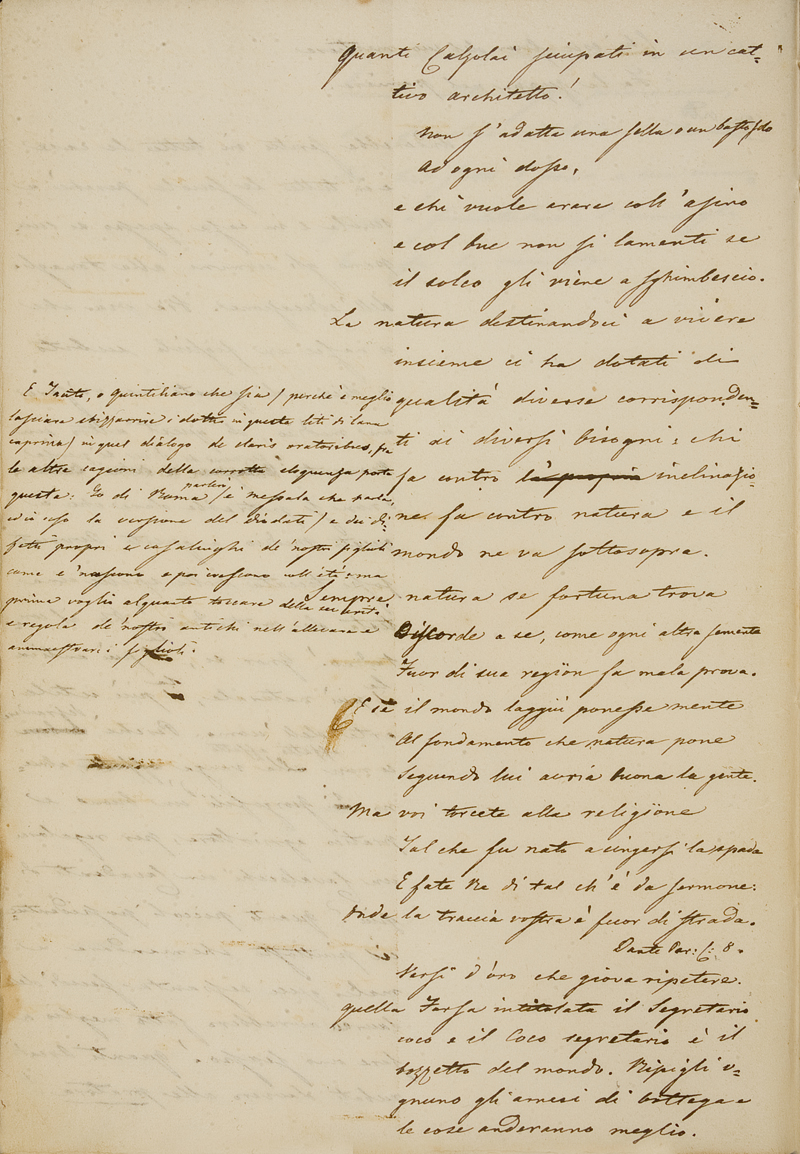 Quanti Calzolai sciupati in un cat=
tivo architetto!
Non s'adatta una sella o un basto
ad ogni dosso,
e chi vuole arare coll'asino
e col bue non si lamenti se
il solco gli viene a sghimbescio.
La natura destinandoci a vivere
insieme ci ha dotati di
qualità diverse corrisponden=
ti ai diversi bisogni: chi
fa contro la propria inclinazio=
ne fa contro natura e il
mondo ne va sottosopra.
Sempre natura se fortuna trova
Discorde a se, come ogni altra semente
Fuor di sua region fa mala prova.
E se il mondo laggiù ponesse mente
Al fondamento che natura pone
Seguendo lui avria buona la gente.
Ma voi torcete alla religione
Tal che fu nato a cingersi la spada
E fate Re di tal ch'è da sermone:
Onde la traccia vostra è fuor di strada.
Dante Par: C: 8.
Versi d'oro che giova ripetere.
Quella Farsa intitolata il Segretario
coco e il Coco segretario è il
bozzetto del mondo. Ripigli o=
gnuno gli arnesi di bottega e
le cose anderanno meglio.
E Tacito, o Quintiliano che sia (perché è meglio
lasciare sbizzarrire i dotti in queste liti di lana
caprina) in quel dialogo de claris oratoribus, fra
le altre cagioni della corrotta eloquenza porta
questa: Io di Roma parlerò (è Messala che parla,
ed io uso la versione del
fetti propri e casalinghi de' nostri figliuoli
come e' nascono e poi crescono coll'età: ma
prima voglio alquanto toccare della severità
e regola de' nostri antichi nell'allevare e
ammaestrare i figlioli.